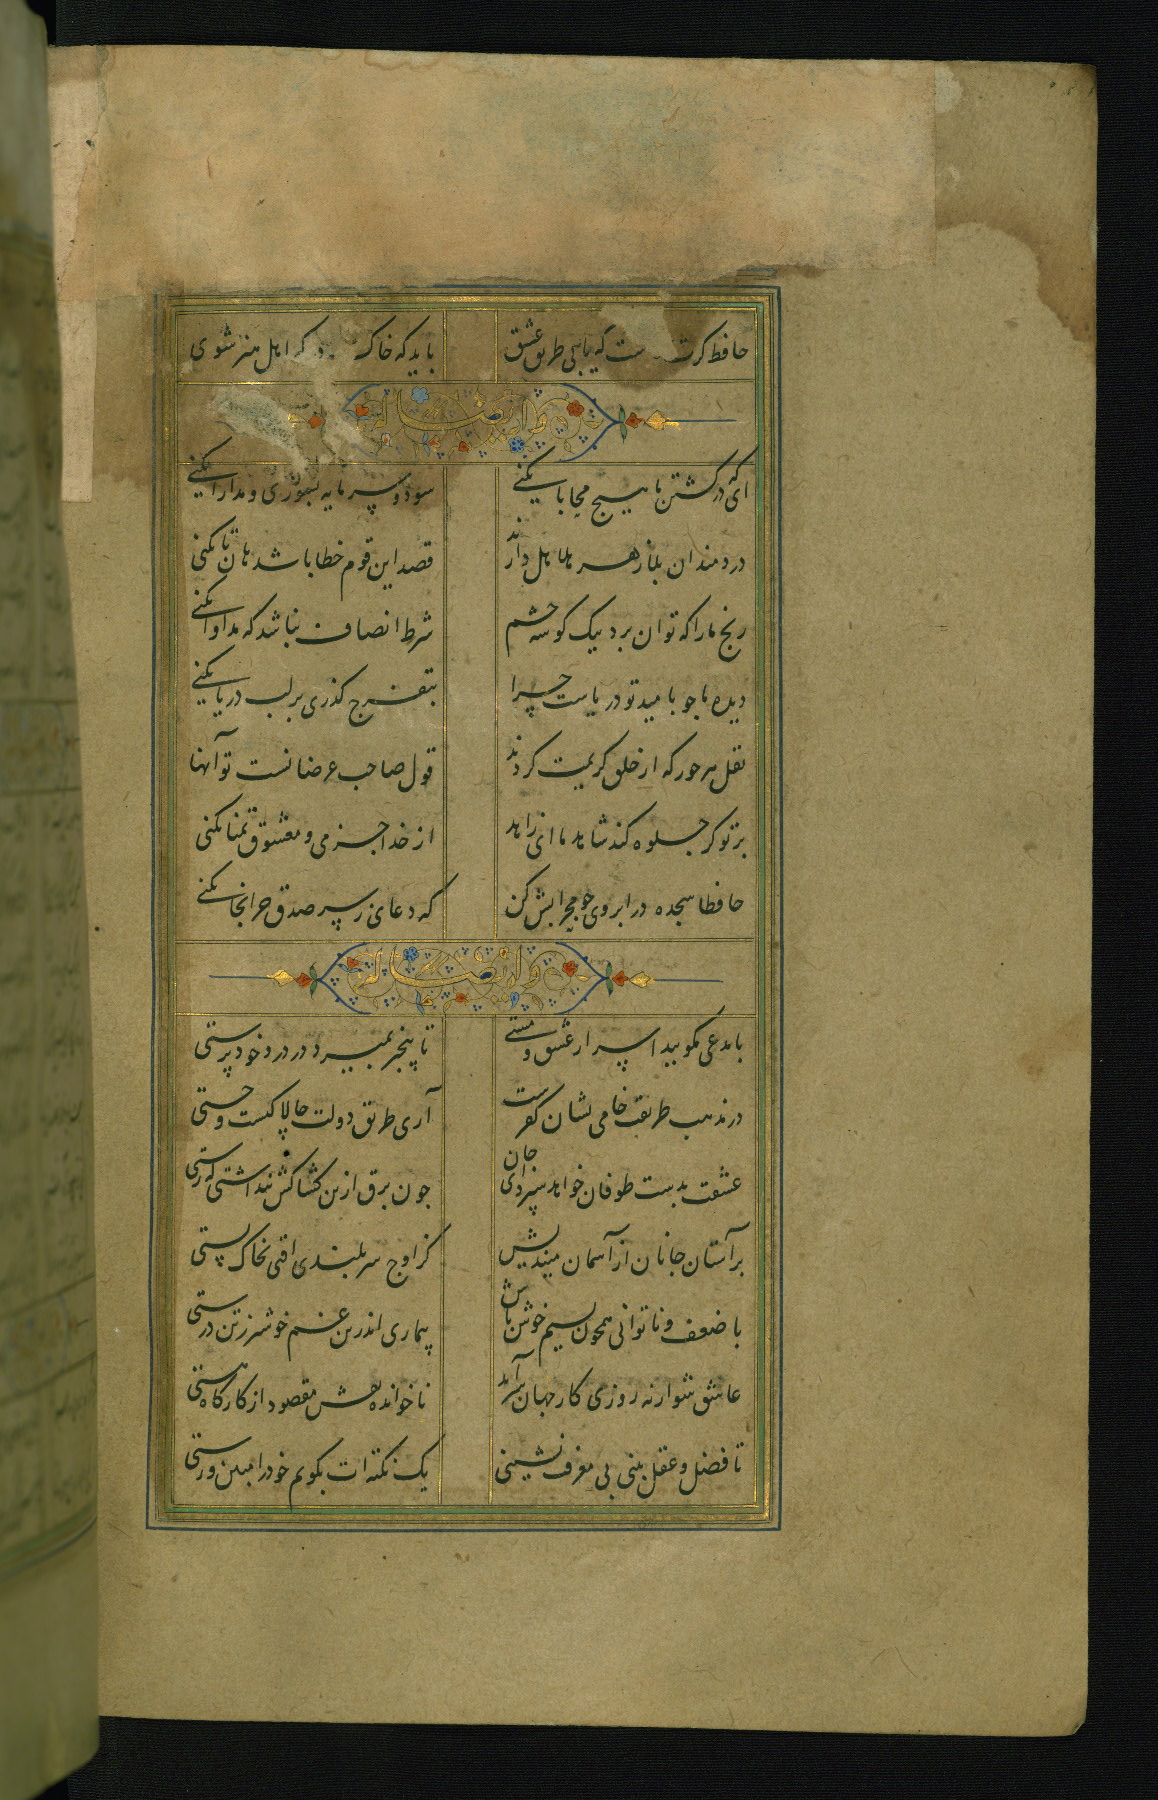 حافظ کرت ست که یابی طریق عشق
باید که خاک که اهل هنر شوی
وله ایضا
ای که در کشتن ما هیچ محابا نکنی
سود و سرمایه بسوزی و مدارا نکنی
دردمندان بلا زهر هلاهل دارند
قصد این قوم خطا باشد هان تا نکنی
رنج ما را که توان برد بیک گوشه چشم
شرط انصاف نباشد که مداوا نکنی
دیده ما جو بامید تو دریاست چرا
بتفرج گذری بر لب دریا نکنی
نقل هر جور که از خلق کریمت کردند
قول صاحب غرضانست تو آنها نکنی
بر تو گر جلوه کند شاهد ما ای زاهد
از خدا جز می و معشوق تمنا نکنی
حافظا سجده در ابروی چو محرابش کن
که دعای ز سر صدق جز آنجا نکنی
وله ایضا
با مدعی مگویید اسرار عشق و مستی
تا بیخبر بمیرد در درد خودپرستی
در مذهب طریقت خامی نشان کفرست
آری طریق دولت چالاکیست و چستی
عشقت بدست طوفان خواهد سپردی جان
چون برق ازین کشاکش پنداشتی که رستی
بر آستان جانان از آسمان میندیش
کز اوج سربلندی افتی بخاک پستی
با ضعف و ناتوانی همچون نسیم خوش باش
بیماری اندرین غم خوشتر ز تن درستی
عاشق شو ار نه روزی کار جهان سرآید
ناخوانده نقش مقصود از کارگاه هستی
تا فضل و عقل بینی بی معرفت نشینی
یک نکته ات بگویم خود را مبین و رستی